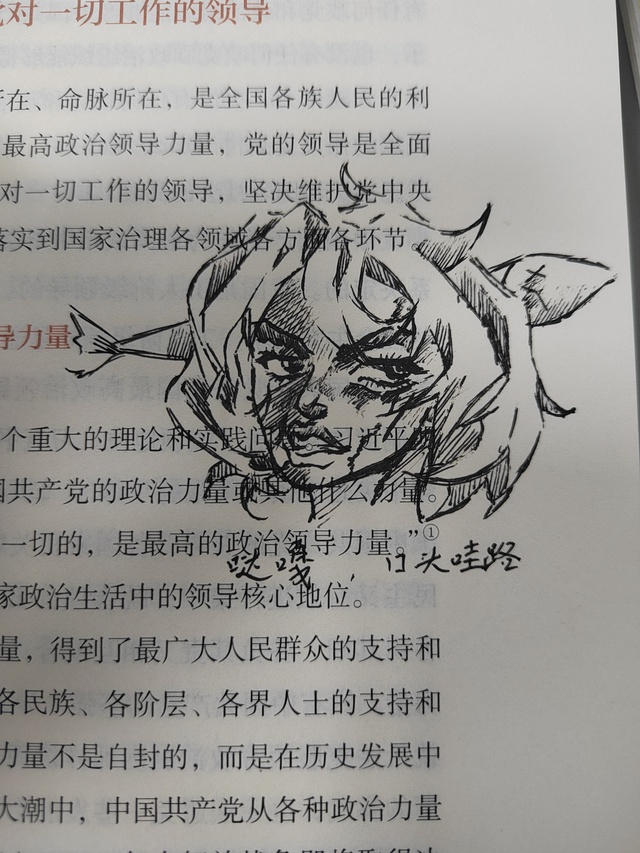 对一切工作的领导
所在、命脉所在，是全国各族人民的利
最高政治领导力量，党的领导是全面
对一切工作的领导，坚决维护党中央
落实到国家治理各领域各方面各环节。
导力量
个重大的理论和实践问题。习近平
国共产党的政治力量或其他什么力量。
一切的，是最高的政治领导力量。”①
哒 嘎，口头哇路
家政治生活中的领导核心地位。
量，得到了最广大人民群众的支持和
各民族、各阶层、各界人士的支持和
力量不是自封的，而是在历史发展中
大潮中，中国共产党从各种政治力量